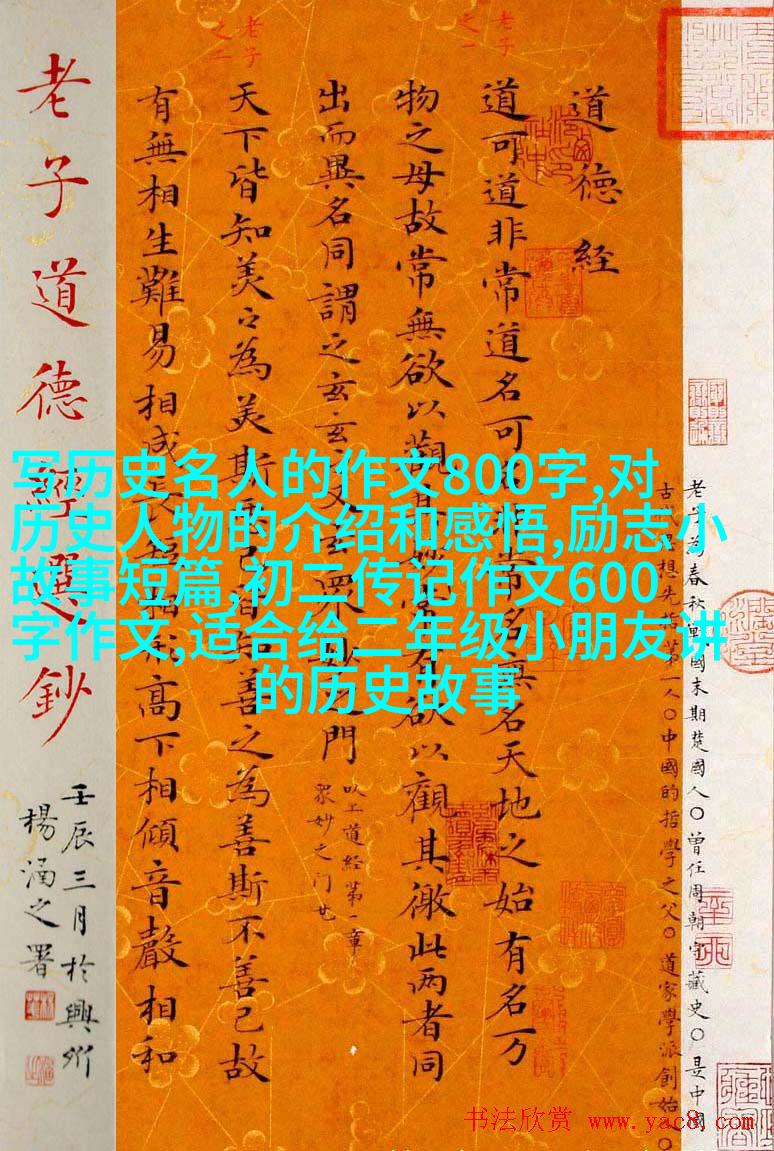 写历史名人的作文800字,对
历史人物的介绍和感悟,励志小
故事短篇,初二传记作文600
字作文,适合给二年级小朋友讲
的历史故事
老子为春秋戰國末期楚國人〇曾任周朝守藏史〇是中國
古代思想先哲第一人〇中國的哲學之父〇道家學派創始人〇
道德經
老子之一
道可道非常道名可常名無名天地之始有名万
物之母故常無欲以觀其妙常有欲以觀其徼此两者同
出而異名同謂之玄玄之又玄眾妙之門
以上道經第一章
眾妙之门也
老子之二
天下皆知美之為美斯惡已皆知善之為善斯不善已故
有無相生難易相成長短相形高下相傾音聲相和
老子道德經選鈔
壬辰三月於興州
楊涵之署
书法欣赏 www.yac8.com